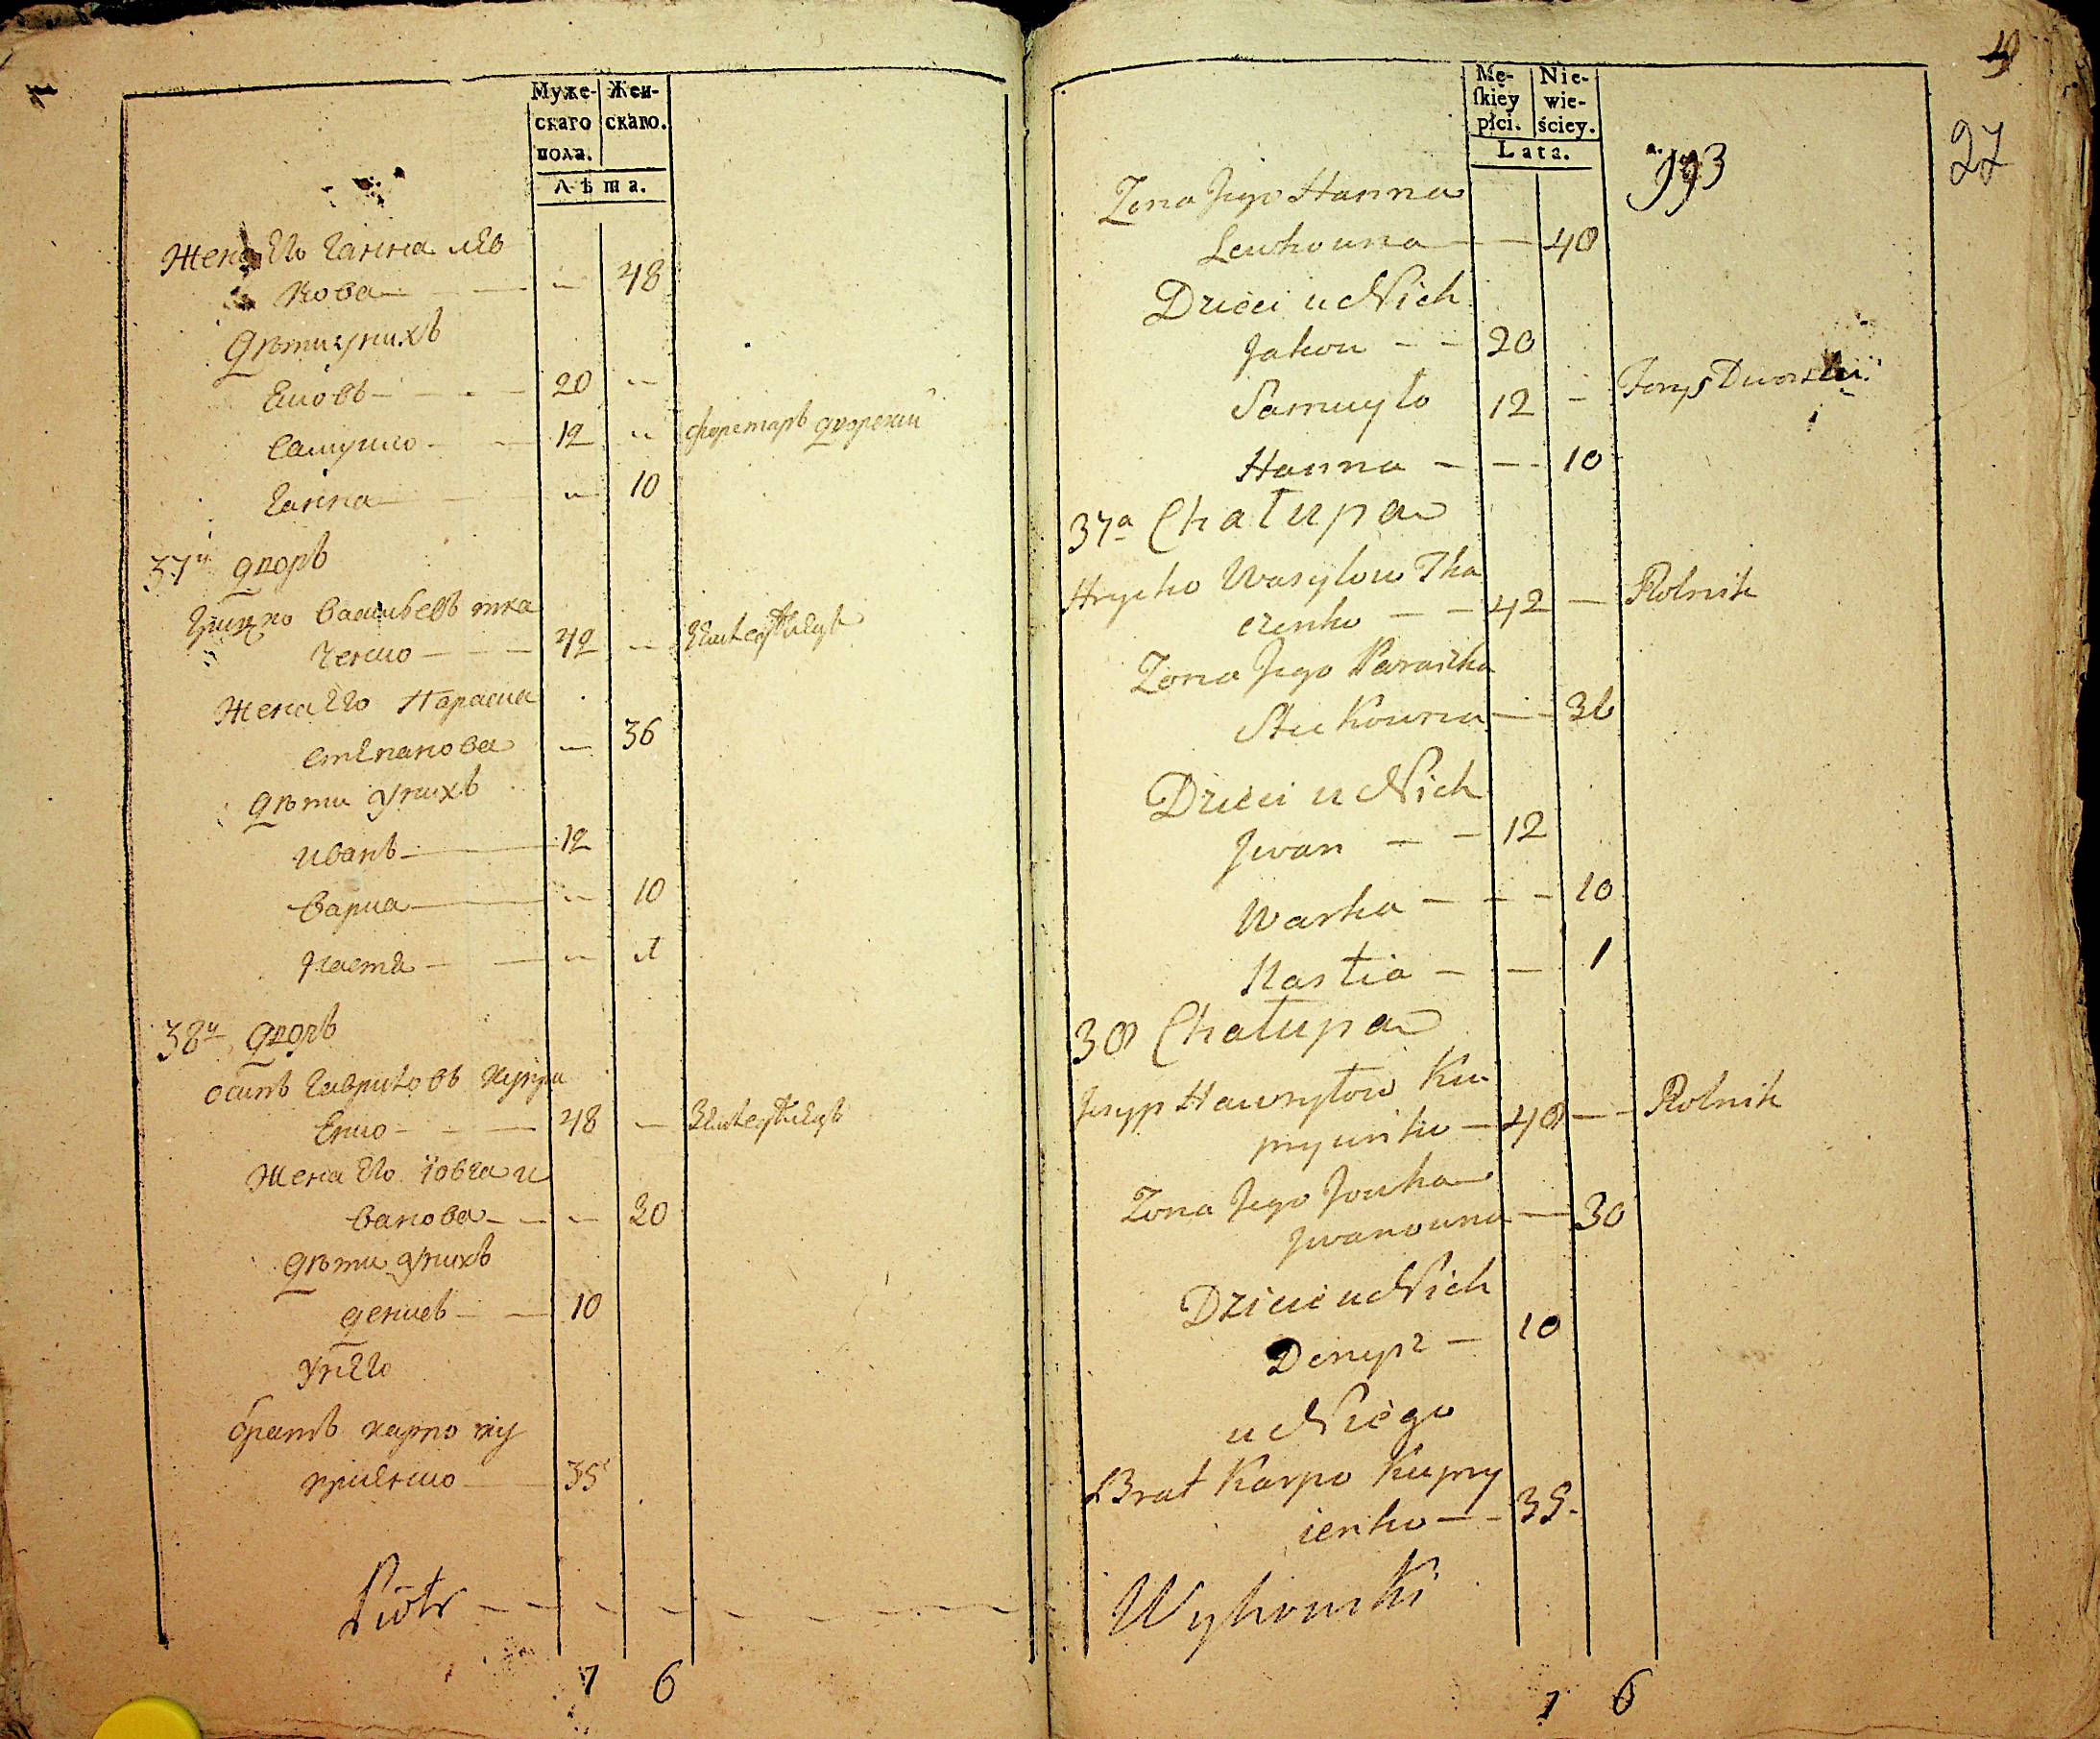 Муже-
скаго
пола.
Жен-
скаго.
Лѣта.
Жена Его Ганна лев
кова — — — 48
Дѣти у нихъ
Яковъ — — 20 —
Самуило — — 12 — форетаръ дворский
Ганна — — 10
37й дворъ
Грицко Васильевъ тка
ченко — — 42 — Земледѣлецъ
Жена Его Параска
степанова — 36
Дѣти у нихъ
иванъ — 12
Варка — — 10
Настя — — 1
38й дворъ
осипъ Гавриловъ купри
Енко — — 48 — Земледѣлецъ
Жена Его Ӏовга и
ванова — — 30
Дѣти у нихъ
денисъ — — 10
У него
братъ карпо ку
приенко — 35
Piotr — — — — — —
7 6
Mę-
ſkiey
płci.
Nie-
wie-
ściey.
Lata.
19
27
993
Zona Jego Hanna
Lewkowna — — 48
Dzieci u Nich
Jakow — — 20
Samuyło 12 — Forys Dworski
Hanna — — 10
37a Chałupa
Hrycko Wasylow Tka
czenko — — 42 — Rolnik
Zona Jego Paraska
Steckowna — — 36
Dzieci u Nich
Jwan — — 12
Warka — — — 10
Nastia — — 1
38 Chałupa
Josyp Hawryłow Ku
pryienko — 48 — — Rolnik
Zona Jego Jowha
Jwanowna — 30
Dzieci u Nich
Denys — 10
u Niego
Brat Karpo Kupry
ienko — — 35
Wyhowski
7 6